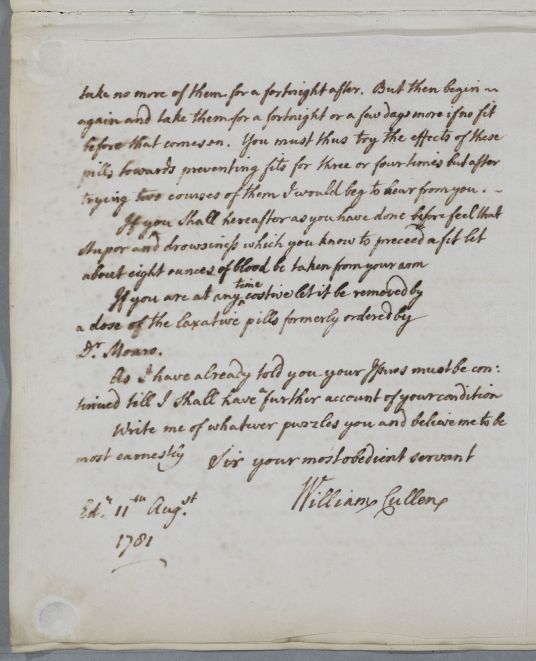 take no more of them for a fortnight after. But then begin ~
again and take them for a fortnight or a few days more if no fit
before that comes on. You must thus try the effects of these
pills towards preventing fits for three or four times but after
trying two courses of them I would beg to hear from you. -
If you shall hereafter as you have done before feel that
stupor and drowsiness which you know to preceed a fit let
about eight ounces of blood be taken from your arm
If you are at any time costive let it be removed by
a dose of the laxative pills formerly ordered by
Dr. Monro.
As I have already told you your Issues must be con:
tinued till I shall have further account of your condition
Write me of whatever puzzles you and believe me to be
most earnestly Sir your most obedient servant
William Cullen
Edr. 11th Augst.
1781